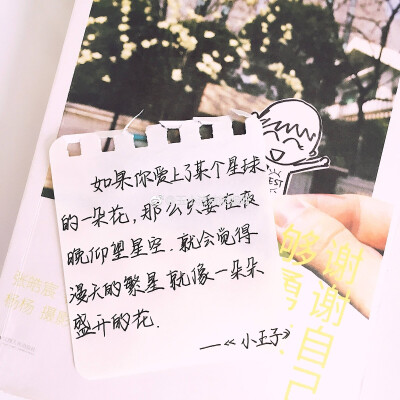 如果你爱上了某个星球
的一朵花,那么只要在夜
晚仰望星空.就会觉得
漫天的繁星就像一朵朵
盛开的花.
——《小王子》
谢谢自己
够勇
张皓宸
杨杨 摄
EST